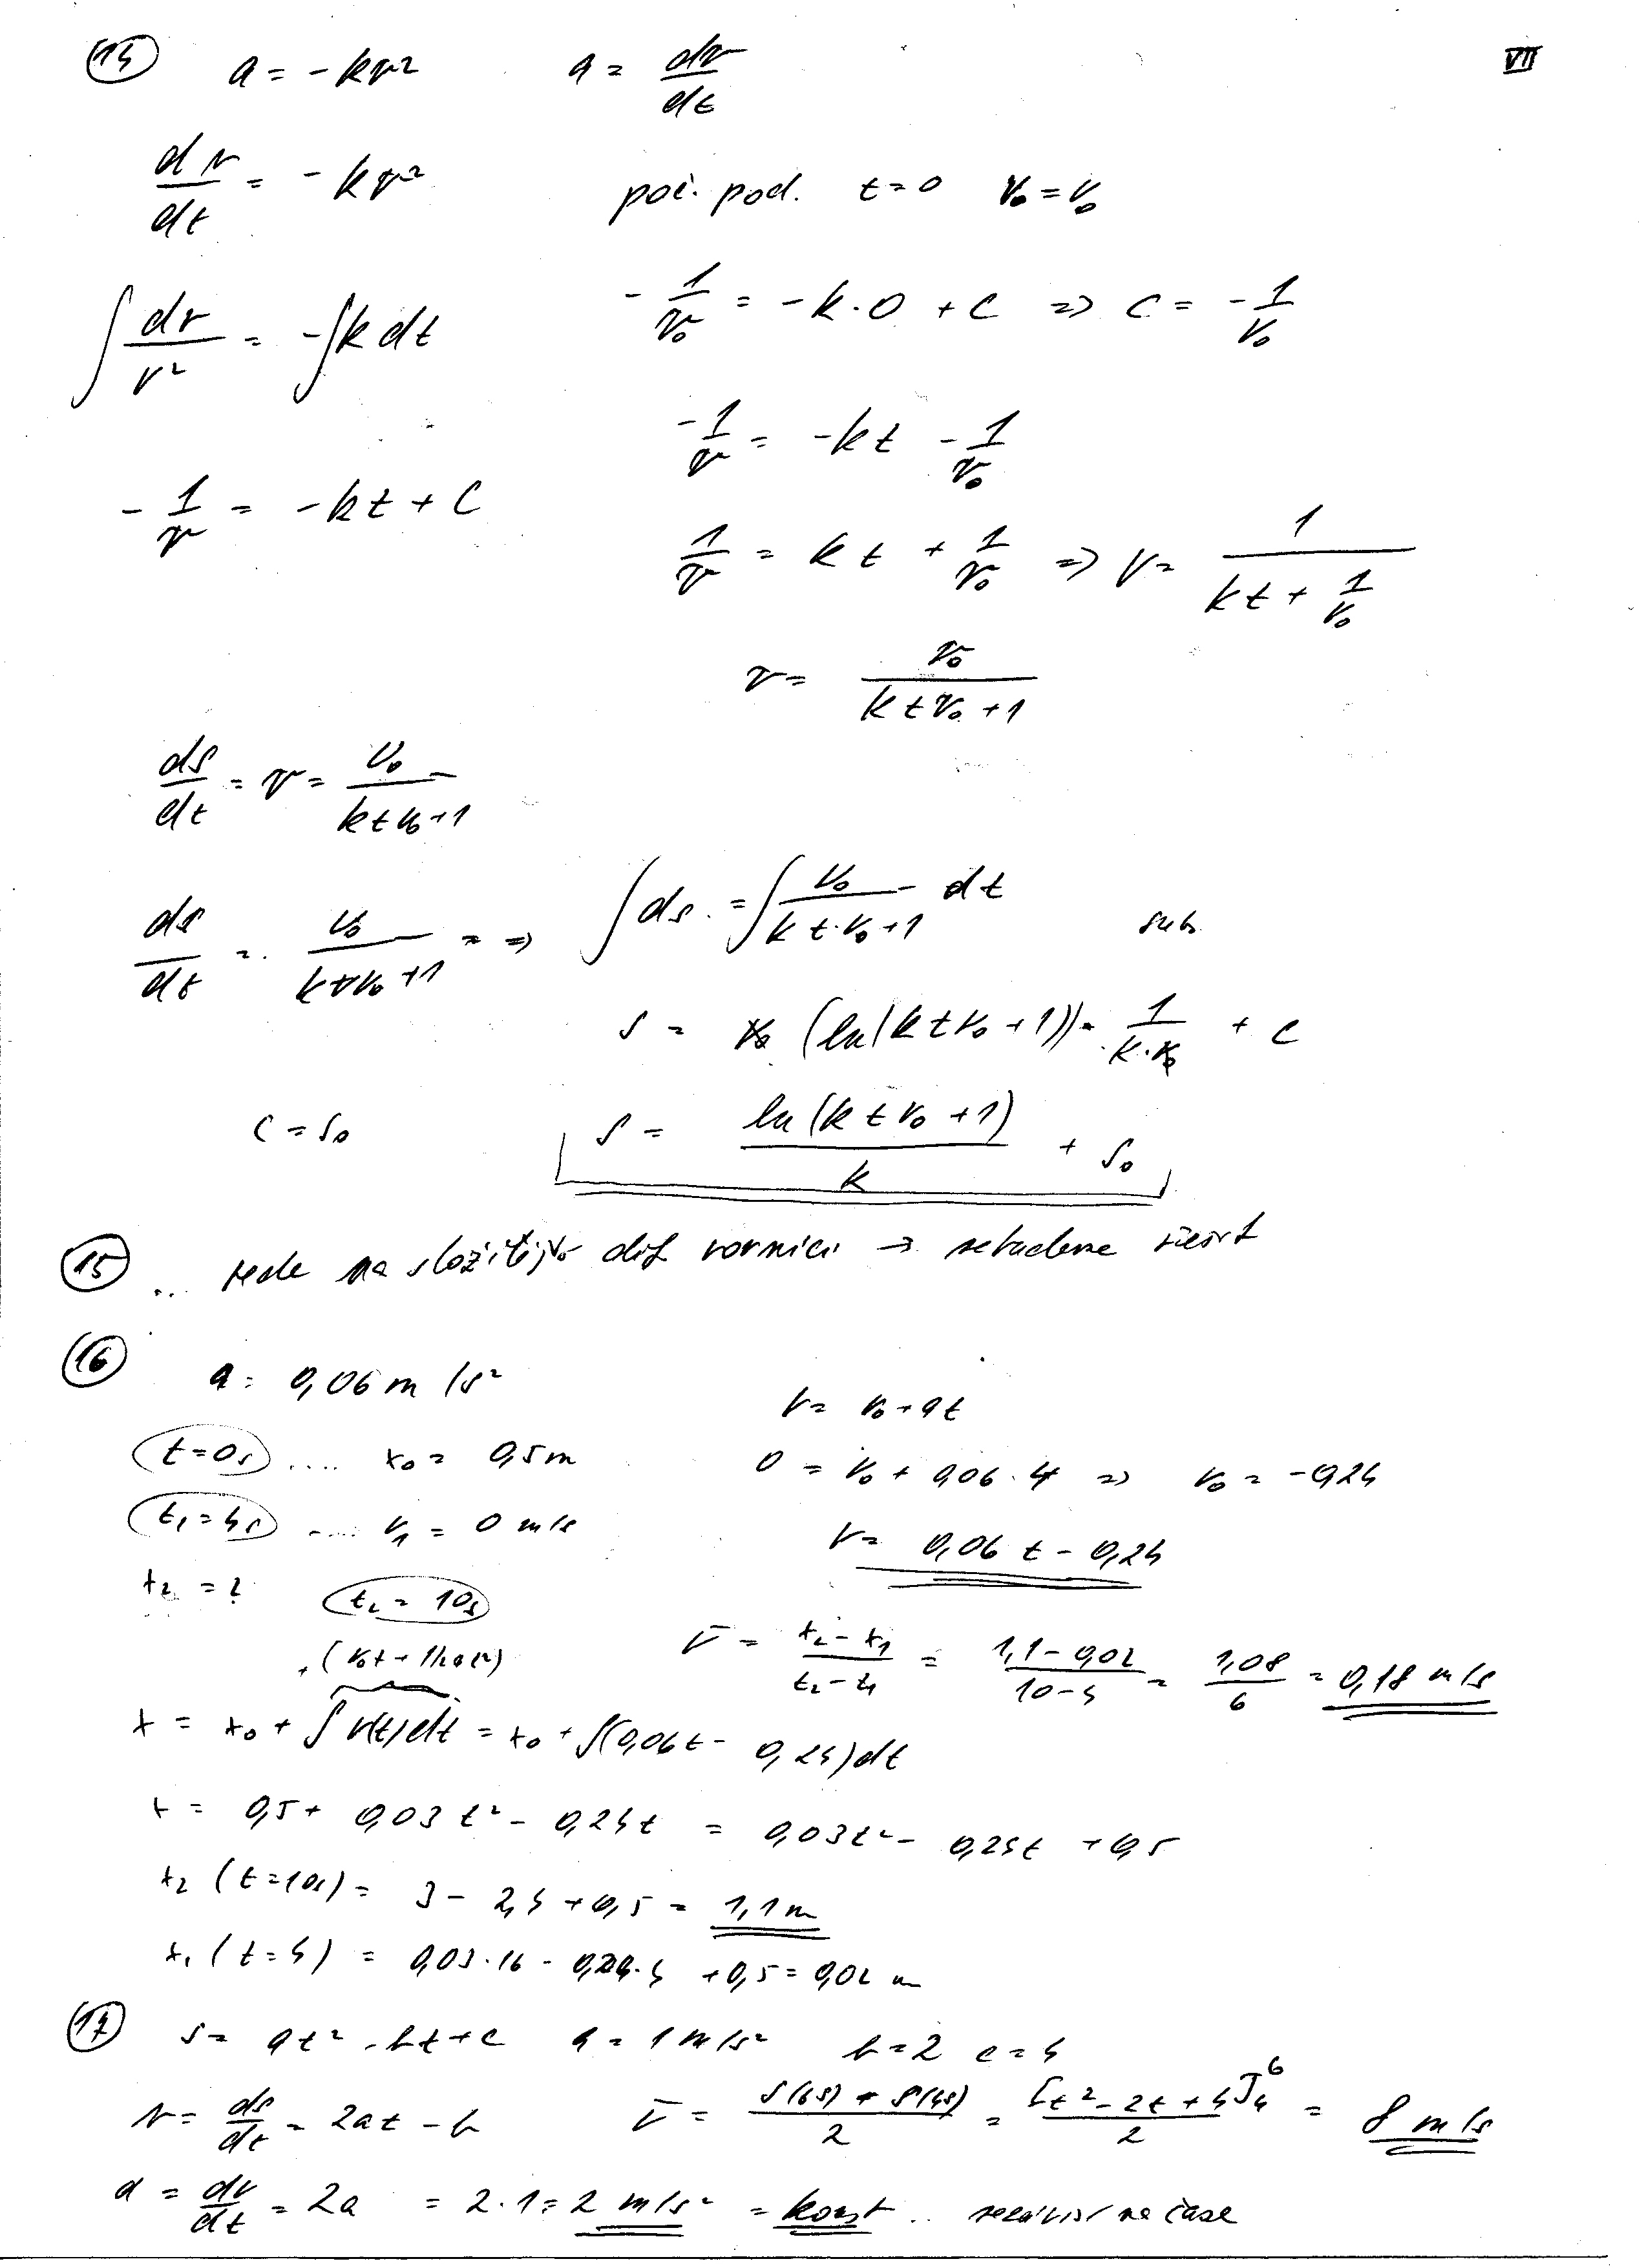 VII
(14) a = -kv² a = dv/dt
dv/dt = -kv² poč. pod. t=0 v₀ = v₀
∫ dv/v² = -∫k dt -1/v₀ = -k·0 + C => C = -1/v₀
-1/v = -kt - 1/v₀
-1/v = -kt + C
1/v = kt + 1/v₀ => v = 1/(kt + 1/v₀)
v = v₀/(ktv₀ + 1)
ds/dt = v = v₀/(ktv₀+1)
ds/dt = v₀/(ktv₀+1) = => ∫ds = ∫ v₀/(kt·v₀+1) dt sub.
s = v₀ (ln(ktv₀+1))· 1/(k·v₀) + C
C = s₀ s = ln(ktv₀+1)/k + s₀
(15) ... vede na složitější dif rovnici → nebudeme řešit
(16) a = 0,06 m/s²
v = v₀ + at
t=0s .... x₀ = 0,5m 0 = v₀ + 0,06·4 => v₀ = -0,24
t₁=4s .... v₁ = 0 m/s v = 0,06 t - 0,24
x₂ = ? t₂ = 10s
+(v₀t + 1/2at²) v̄ = (x₂-x₁)/(t₂-t₁) = (1,1-0,02)/(10-4) = 1,08/6 = 0,18 m/s
x = x₀ + ∫v(t)dt = x₀ + ∫(0,06t - 0,24)dt
x = 0,5 + 0,03t² - 0,24t = 0,03t² - 0,24t + 0,5
x₂ (t=10s) = 3 - 2,4 + 0,5 = 1,1m
x₁ (t=4) = 0,03·16 - 0,24·4 + 0,5 = 0,02 m
(17) s = at² - bt + c a = 1 m/s² b = 2 c = 4
v = ds/dt = 2at - b v̄ = (s(6s) - s(4s))/2 = [t²-2t+4]₄⁶/2 = 8 m/s
a = dv/dt = 2a = 2·1 = 2 m/s² = konst .. nezávisí na čase